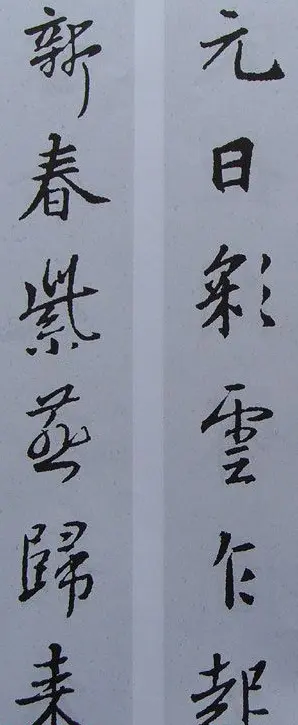 元日彩雲乍起
新春紫燕歸来